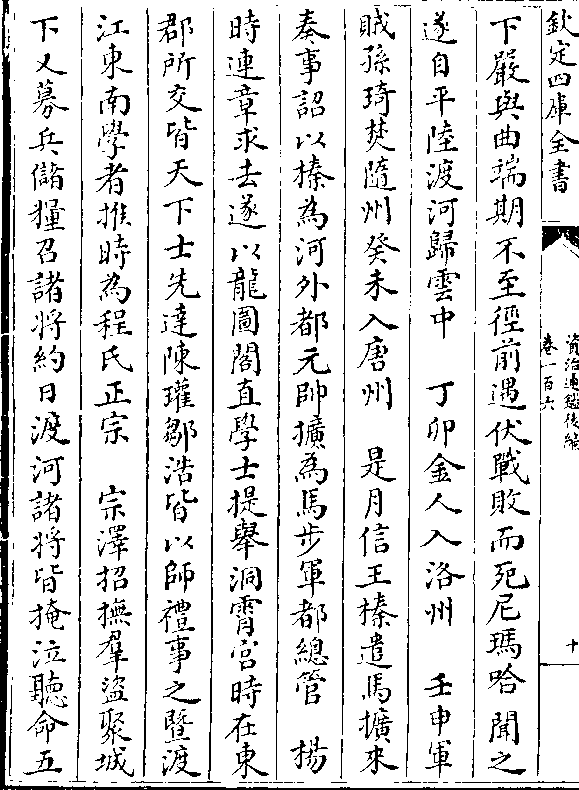 欽定四庫全書
資治通鑑後編
卷一百六
十
下嚴與曲端期不至徑前遇伏戰敗而死尼瑪哈聞之
遂自平陸渡河歸雲中　丁卯金人入洛州　壬申軍
賊孫琦焚隨州癸未入唐州　是月信王榛遣馬擴來
奏事詔以榛為河外都元帥擴為馬步軍都總管　楊
時連章求去遂以龍圖閣直學士提舉洞霄宮時在東
郡所交皆天下士先達陳瓘鄒浩皆以師禮事之暨渡
江東南學者推時為程氏正宗　宗澤招撫羣盜聚城
下又募兵儲糧召諸將約日渡河諸將皆掩泣聽命五